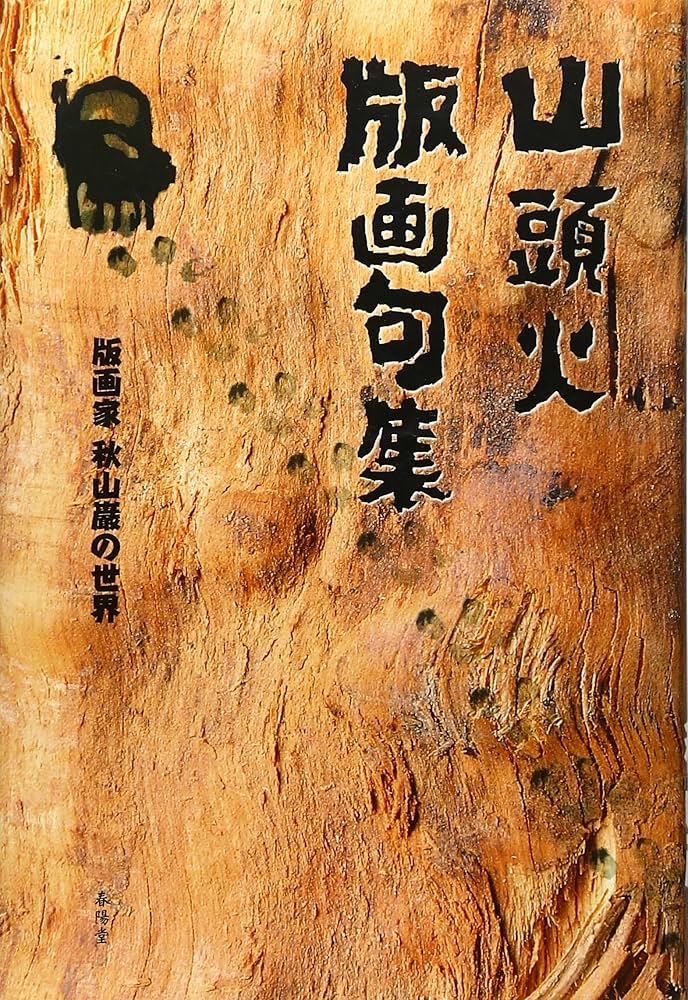 山頭火
版画句集
版画家 秋山巖の世界
春陽堂